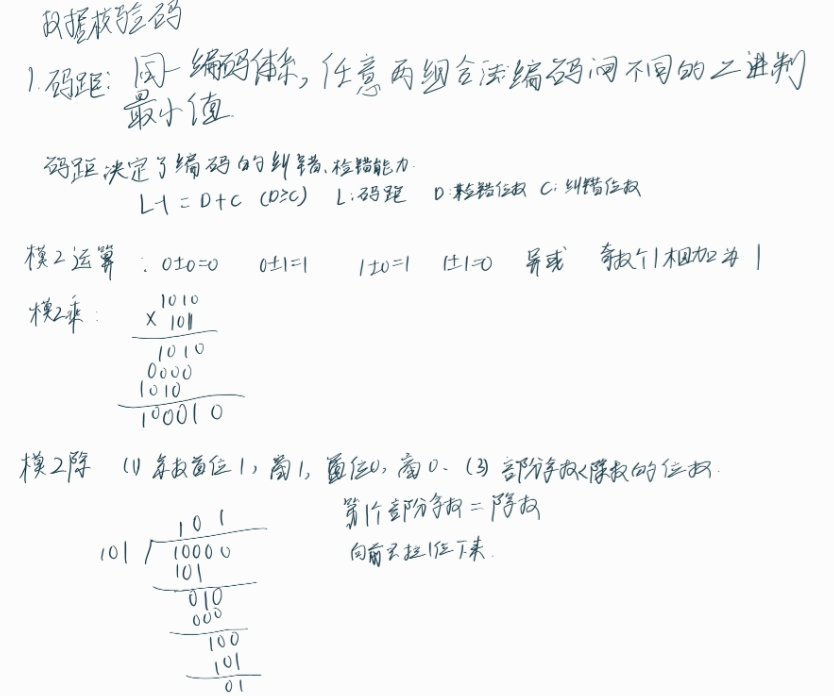 数据校验码
1.码距: 同一编码体系,任意两组合法编码间不同的二进制
最小值.
码距决定了编码的纠错、检错能力.
L-1=D+C (D≥C) L:码距 D:检错位数 C:纠错位数
模2运算: 0±0=0 0±1=1 1±0=1 1±1=0 异或 奇数个1相加为1
模2乘:
1010
× 101
1010
0000
1010
100010
模2除 (1) 余数首位1,商1,首位0,商0. (3) 部分余数<除数的位数.
第1个部分余数=除数
向前去拉1位下来.
101
101 10000
101
010
000
100
101
01